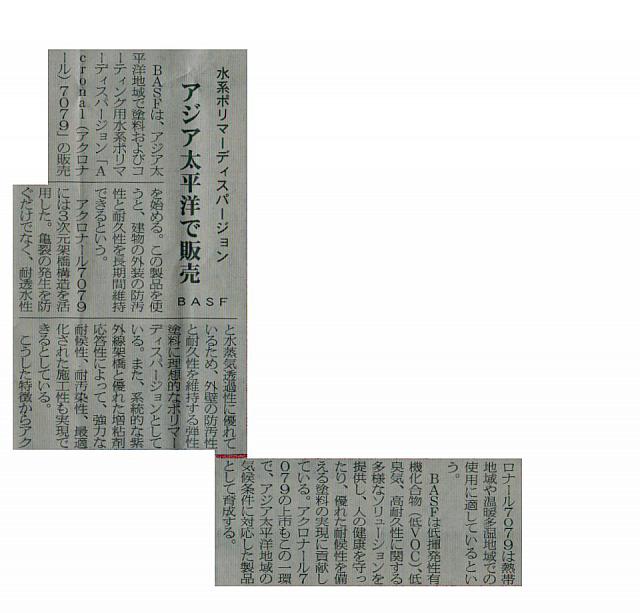 水系ポリマーディスパージョン
アジア太平洋で販売
BASF
BASFは、アジア太
平洋地域で塗料およびコ
ーティング用水系ポリマ
ーディスパージョン「A
cronal(アクロナ
ール)7079」の販売
を始める。この製品を使
うと、建物の外装の防汚
性と耐久性を長期間維持
できるという。
アクロナール7079
には3次元架橋構造を活
用した。亀裂の発生を防
ぐだけでなく、耐透水性
と水蒸気透過性に優れて
いるため、外壁の防汚性
と耐久性を維持する弾性
塗料に理想的なポリマー
ディスパージョンとして
いる。また、系統的な紫
外線架橋と優れた増粘剤
応答性によって、強力な
耐候性、耐汚染性、最適
化された施工性も実現で
きるとしている。
こうした特徴からアク
ロナール7079は熱帯
地域や温暖多湿地域での
使用に適しているとい
う。
BASFは低揮発性有
機化合物(低VOC)、低
臭気、高耐久性に関する
多様なソリューションを
提供し、人の健康を守っ
たり、優れた耐候性を備
える塗料の実現に貢献し
ている。アクロナール7
079の上市もこの一環
で、アジア太平洋地域の
気候条件に対応した製品
として育成する。